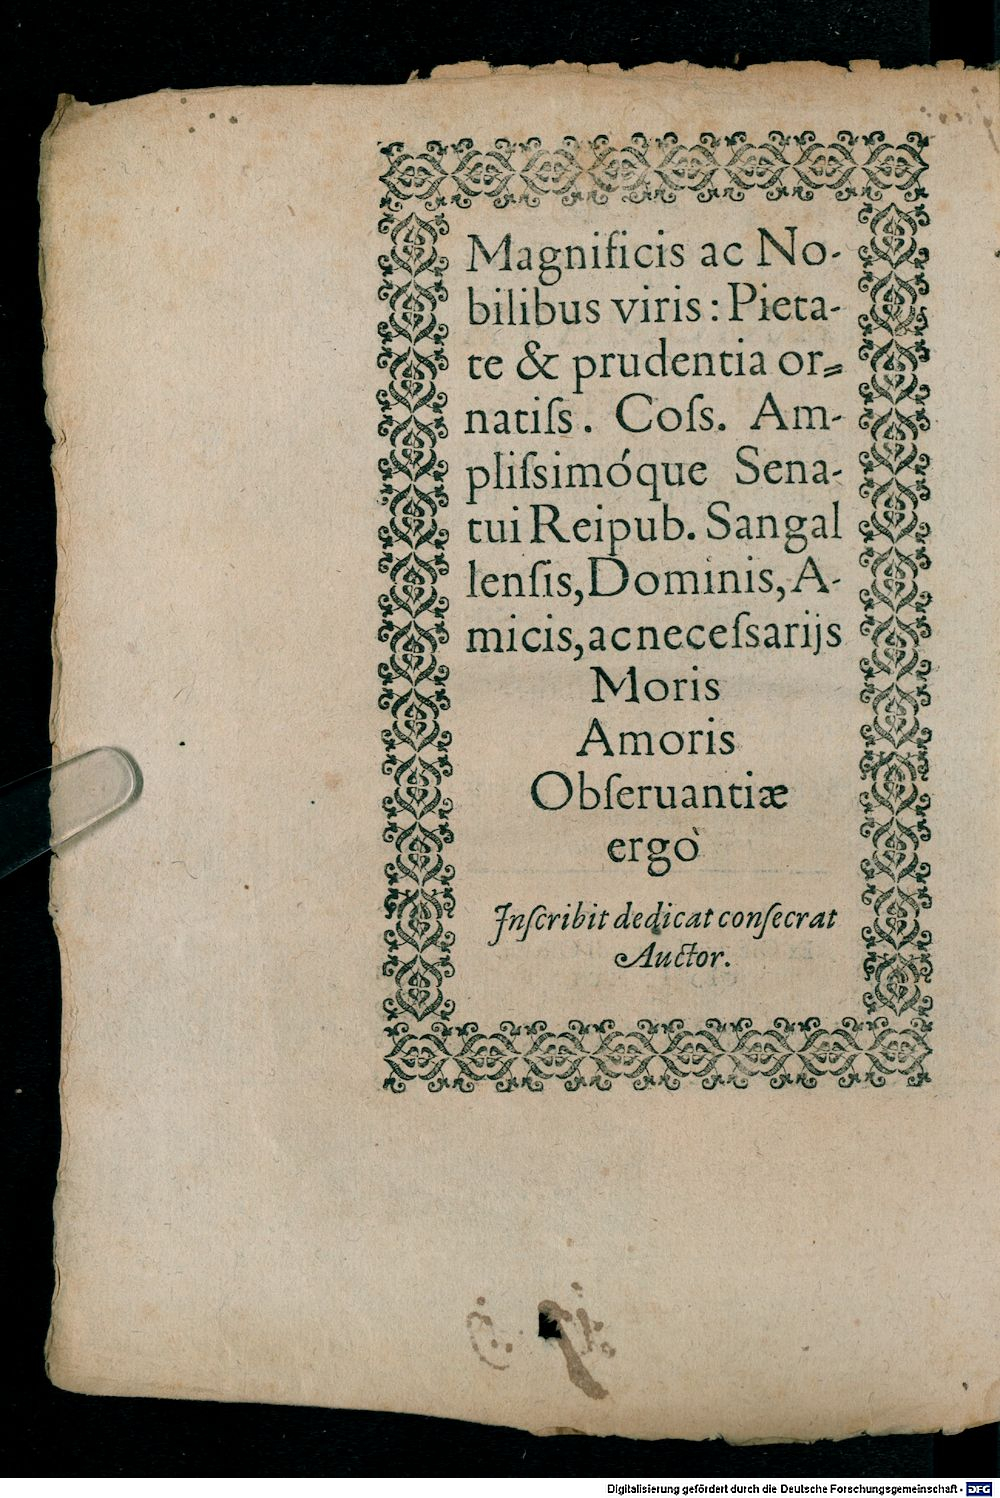 Magnificis ac No-
bilibus viris: Pieta-
te & prudentia or⸗
natiſs. Coſs. Am-
pliſsimóque Sena-
tui Reipub. Sangal
lenſis, Dominis, A-
micis, ac neceſsarijs
Moris
Amoris
Obſeruantiæ
ergò
Inſcribit dedicat conſecrat
Auctor.
Digitalisierung gefördert durch die Deutsche Forschungsgemeinschaft - DFG